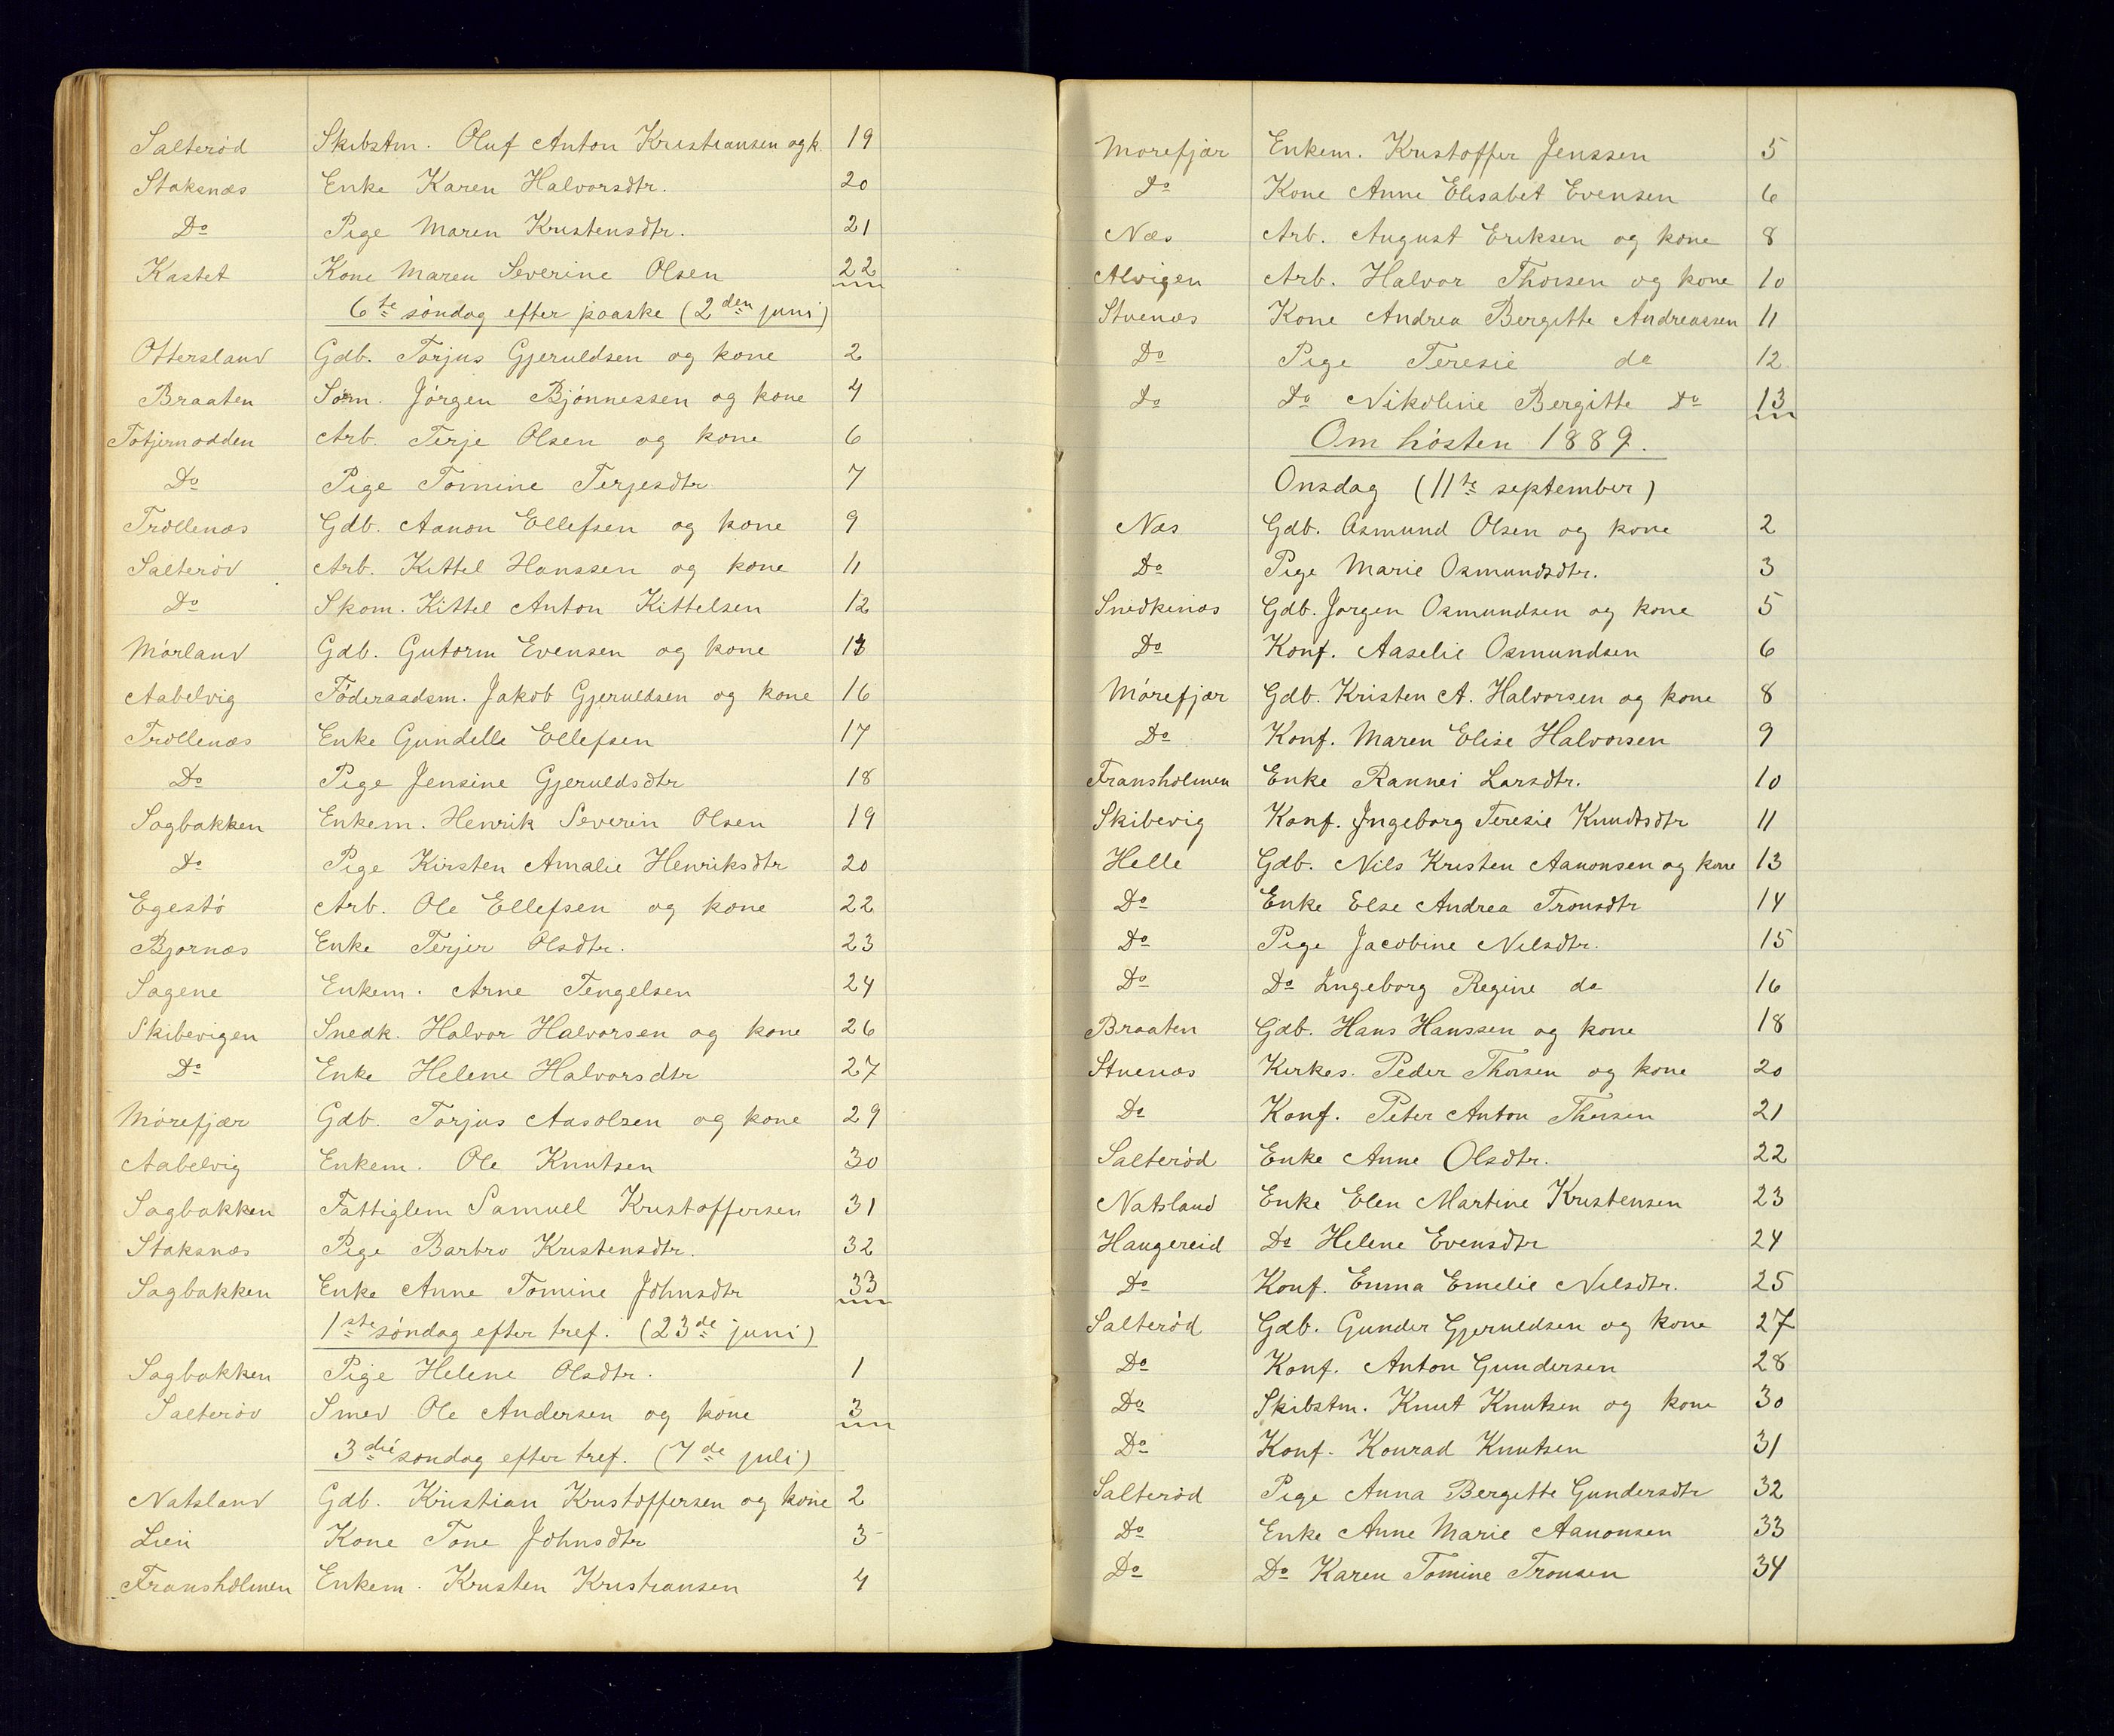 Salterød Skibstm. Oluf Anton Kristiansen og k. 19
Staksnæs Enke Karen Halvorsdtr. 20
Do Pige Maren Kristensdtr. 21
Kastet Kone Maren Severine Olsen 22
6te søndag efter paaske (2den juni)
Ottersland Gdb. Torjus Gjeruldsen og kone 2
Braaten Søm. Jørgen Bjønnessen og kone 4
Totjernodden Arb. Terje Olsen og kone 6
Do Pige Tomine Terjesdtr 7
Trollenæs Gdb. Aanon Ellefsen og kone 9
Salterød Arb. Kittel Hanssen og kone 11
Do Skom. Kittel Anton Kittelsen 12
Mørland Gdb. Gutorm Evensen og kone
Aabelvig Føderaadsm. Jakob Gjeruldsen og kone 16
Trollenæs Enke Gundelle Ellefsen 17
Do Pige Jensine Gjeruldsdtr 18
Sagbakken Enkem. Henrik Severin Olsen 19
Do Pige Kirsten Amalie Henriksdtr 20
Egestø Arb. Ole Ellefsen og kone 22
Bjornæs Enke Terjer Olsdtr. 23
Sagene Enkem. Arne Tengelsen 24
Skibevigen Snedk. Halvor Halvorsen og kone 26
Do Enke Helene Halvorsdtr 27
Mørefjær Gdb. Torjus Aasolsen og kone 29
Aabelvig Enkem. Ole Knutsen 30
Sagbakken Fattiglem Samuel Kristoffersen 31
Staksnæs Pige Barbro Kristensdtr. 32
Sagbakken Enke Anne Tomine Johnsdtr 33
1ste søndag efter tref. (23de juni)
Sagbakken Pige Helene Olsdtr. 1
Salterød Smed Ole Andersen og kone 3
3die søndag efter tref. (7de juli)
Natsland Gdb. Kristian Kristoffersen og kone 2
Lien Kone Tone Johnsdtr 3
Fransholmen Enkem. Kristen Kristiansen 4
Mørefjær Enkem. Kristoffer Jenssen 5
Do Kone Anne Elisabet Evensen 6
Næs Arb. August Eriksen og kone 8
Alvigen Arb. Halvor Thorsen og kone 10
Stuenæs Kone Andrea Bergitte Andreassen 11
Do Pige Teresie do 12
Do Do Nikoline Bergitte Do 13
Om høsten 1889.
Onsdag (11te september)
Næs Gdb. Osmund Olsen og kone 2
Do Pige Marie Osmundsdtr. 3
Snedkenæs Gdb. Jørgen Osmundsen og kone 5
Do Konf. Aaselie Osmundsen 6
Mørefjær Gdb. Kristen A. Halvorsen og kone 8
Do Konf. Maren Elise Halvorsen 9
Fransholmen Enke Rannei Larsdtr. 10
Skibevig Konf. Ingeborg Teresie Knudtsdtr 11
Helle Gdb. Nils Kristen Aanonsen og kone 13
Do Enke Else Andrea Tronsdtr 14
Do Pige Jacobine Nilsdtr. 15
Do Do Ingeborg Regine do 16
Braaten Gdb. Hans Hanssen og kone 18
Stuenæs Kirkes. Peder Thorsen og kone 20
Do Konf. Peter Anton Thorsen 21
Salterød Enke Anne Olsdtr. 22
Natsland Enke Elen Martine Kristensen 23
Haugereid Do Helene Evensdtr 24
Do Konf. Emma Emelie Nilsdtr. 25
Salterød Gdb. Gunder Gjeruldsen og kone 27
Do Konf. Anton Gundersen 28
Do Skibstm. Knut Knutsen og kone 30
Do Konf. Konrad Knutsen 31
Salterød Pige Anna Bergitte Gundersdtr 32
Do Enke Anne Marie Aanonsen 33
Do Do Karen Tomine Tronsen 34